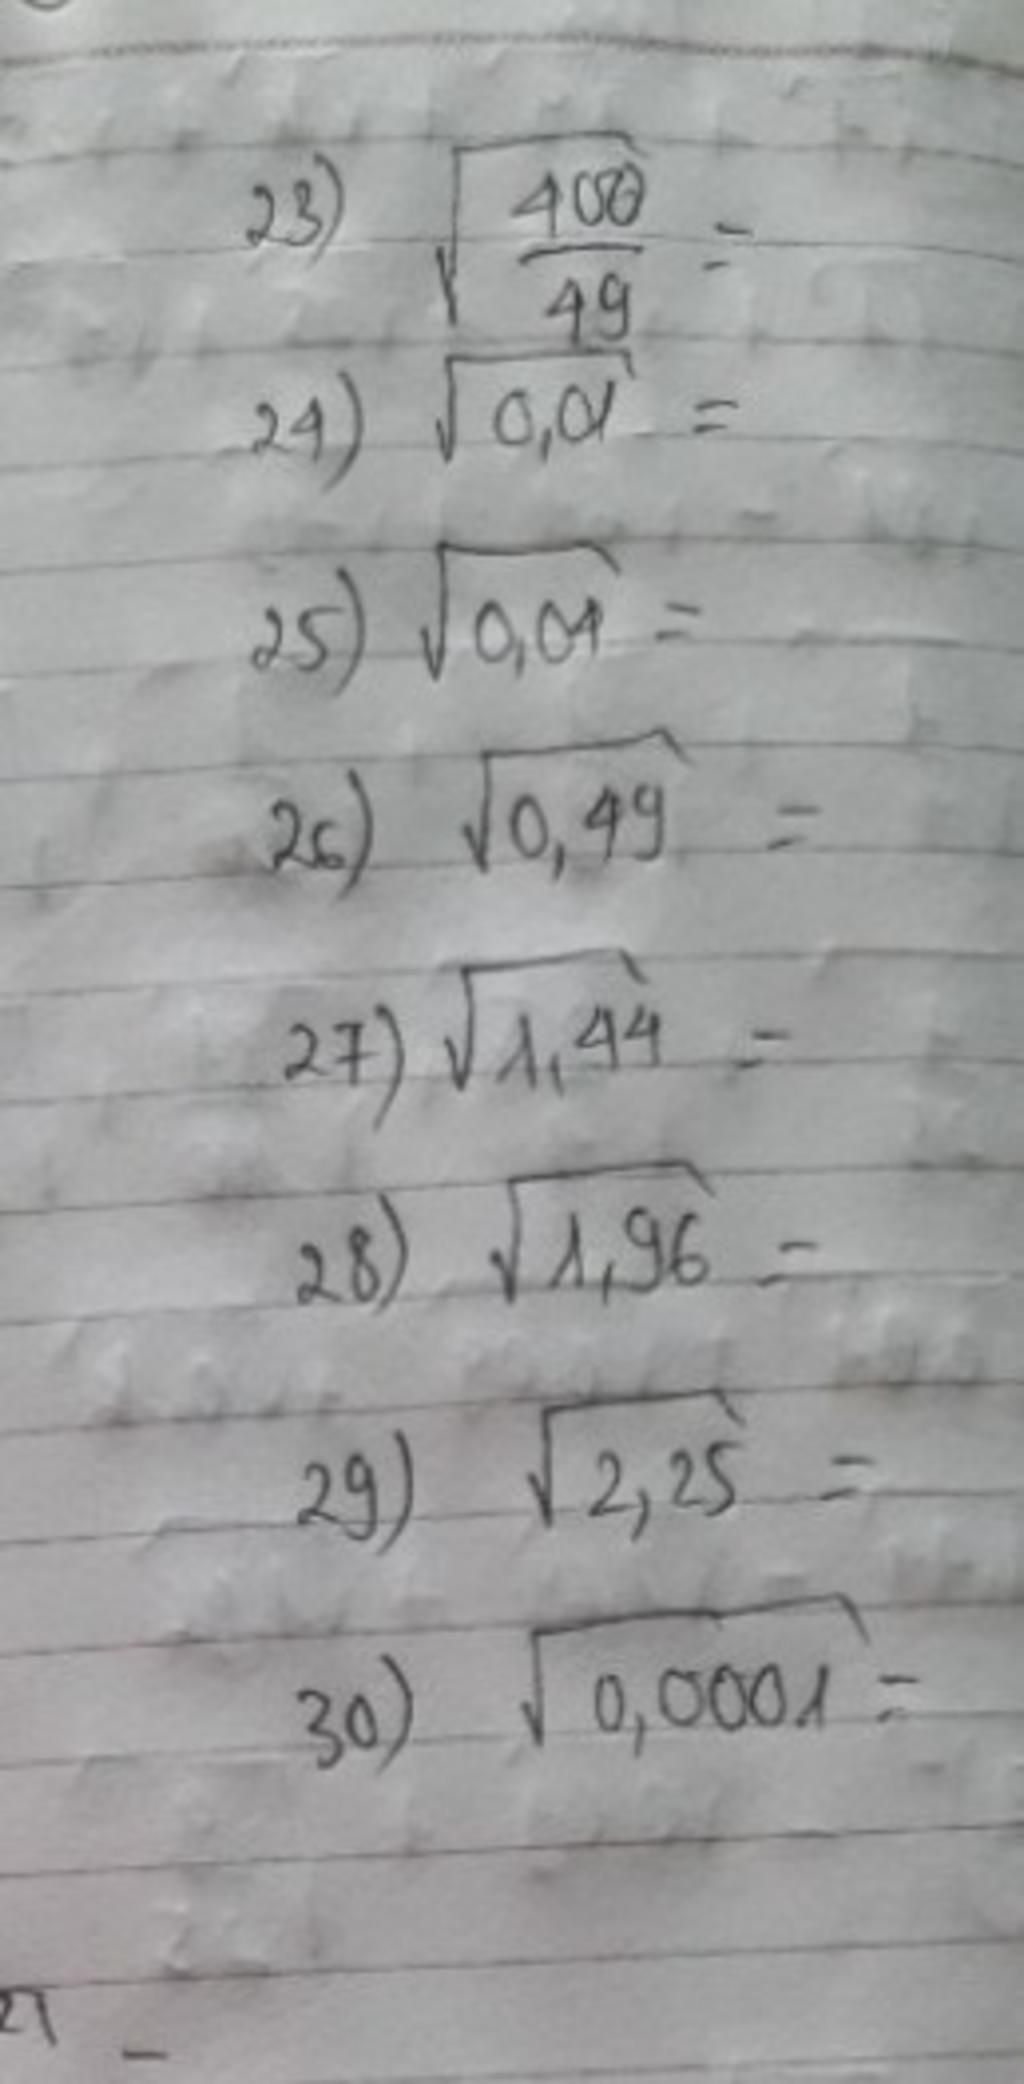 23) √400/49 =
24) √0,01 =
25) √0,01 =
26) √0,49 =
27) √1,44 =
28) √1,96 =
29) √2,25 =
30) √0,0001 =